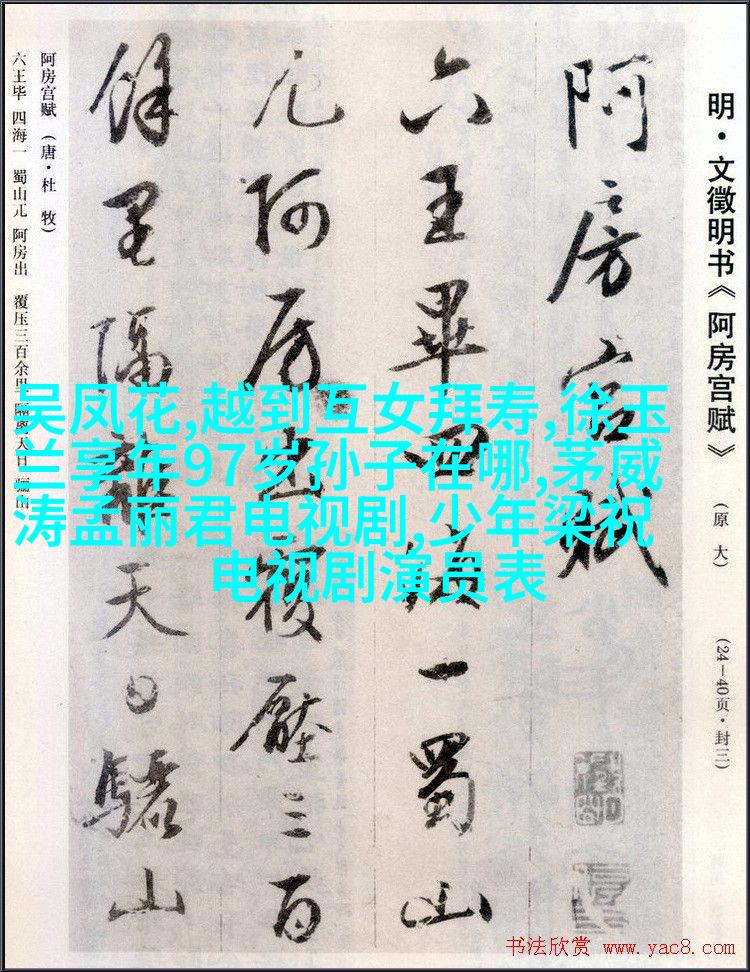 明·文徵明书《阿房宫赋》 (原大) (24—40页·封三)
阿房宫赋
六王毕四海一蜀山
兀阿房出覆压三百
馀里隔离天日骊山
阿房宫赋 (唐·杜 牧)
六王毕 四海一 蜀山兀 阿房出 覆压三百余里 隔离天日 骊山
吴凤花,越到互女拜寿,徐玉
兰享年97岁孙子在哪,茅威
涛孟丽君电视剧,少年梁祝
电视剧演员表
书法欣赏 www.yac8.com